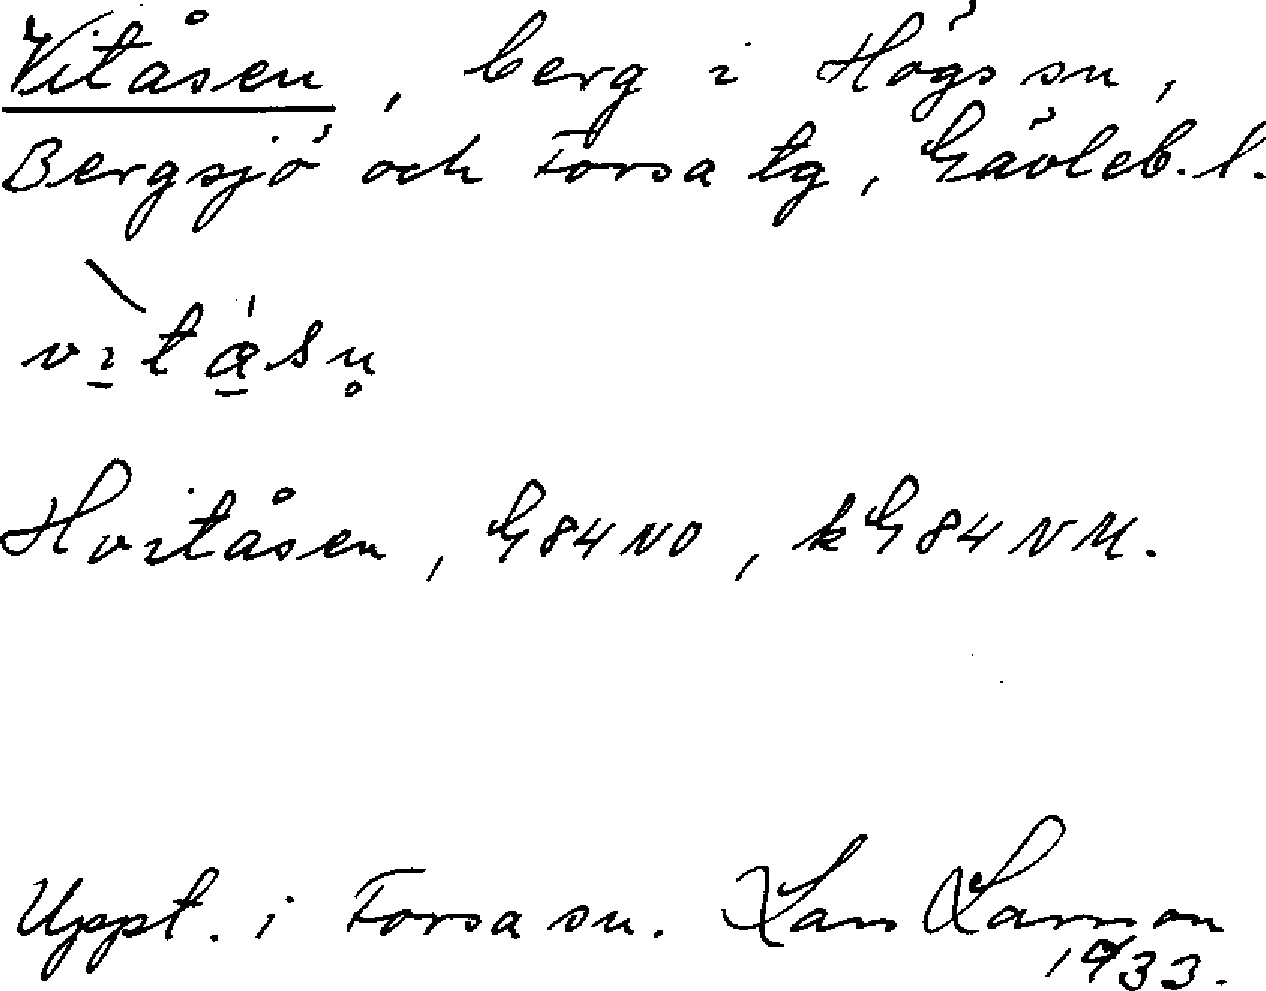 Vitåsen, berg i Högs sn,
Bergsjö och Forsa tg, Gävleb. l.
Hvitåsen, G84NO, kG84NV.
Uppt. i Forsa sn. Lars Larsson
1933.